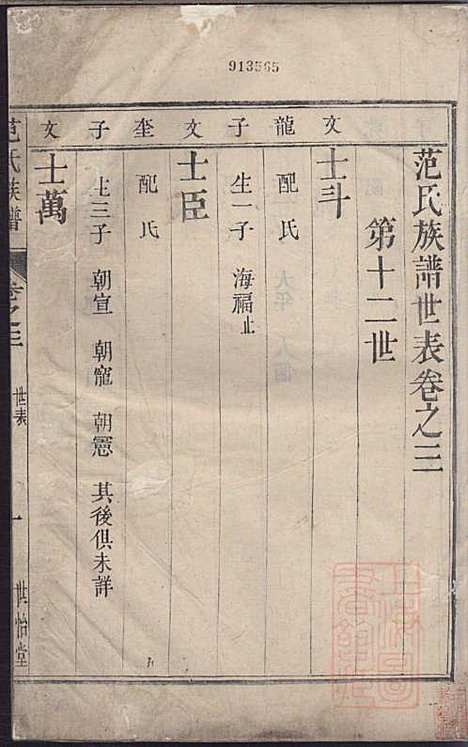 913565
范氏族譜世表卷之三
第十二世
文 士斗
龍 配氏
子 生一子 海福止
文 士臣
奎 配氏
子 生三子 朝宣 朝寵 朝憲 其後俱未詳
文 士萬
范氏族譜 卷之三 世表 一 世怡堂